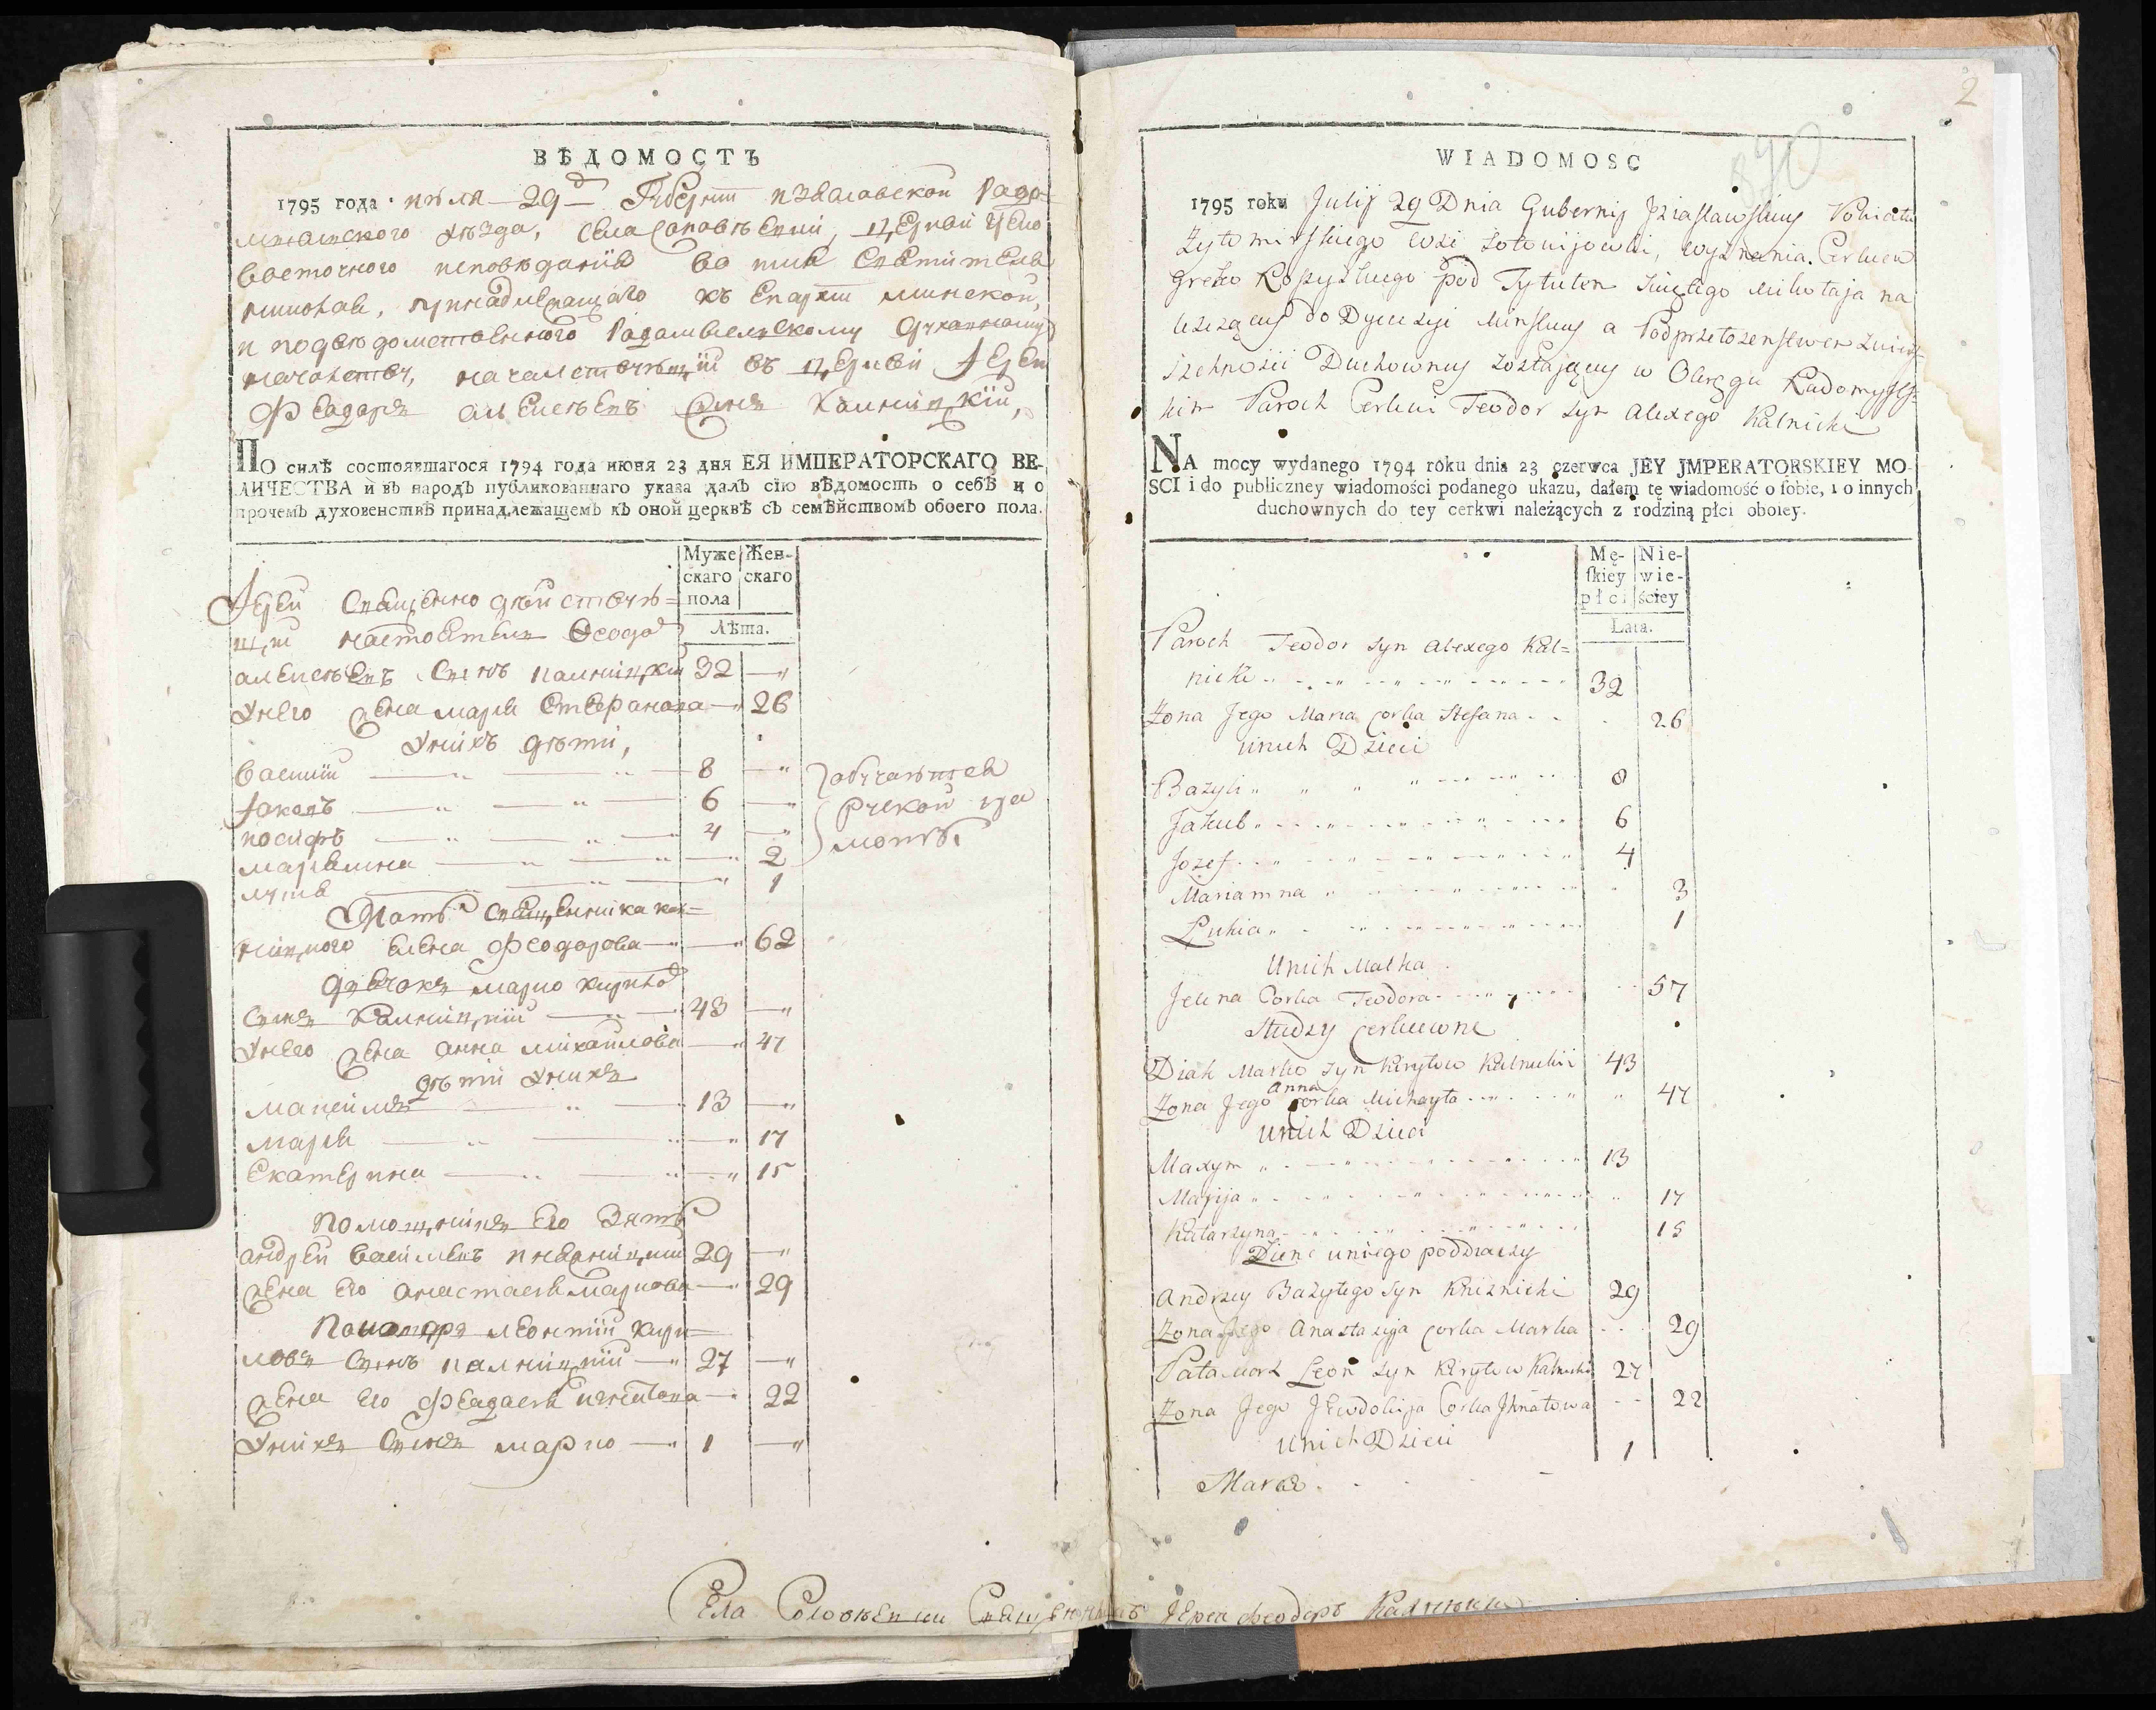 ВѢДОМОСТЬ
1795 года июля 29 Губернии изяславской Радо-
мышлского уезда, села Соловѣевки, церкви греко
восточного исповѣдания во имя Святителя
николая, принадлежащаго къ Епархии минской,
и подведомственного Радомысльскому духовному
началству, началствующій въ церкви Іерей
Феодоръ алексѣевъ сынъ Калницкій,
ПО силѣ состоявшагося 1794 года июня 23 дня ЕЯ ИМПЕРАТОРСКАГО ВЕ-
ЛИЧЕСТВА и въ народъ публикованнаго указа далъ сїю вѣдомость о себѣ и о
прочемъ духовенствѣ принадлежащемъ къ оной церквѣ съ семѣйствомъ обоего пола.
Муже Жен-
скаго скаго
пола
Лѣта.
Іерей Священно дѣйствую=
щи настоятель Феодор
алексѣевъ сынъ калницкий 32 —
Унего жена мария Стефанова — 26
Унихъ дѣти,
василий 8 —
Іаковъ 6 —
иосифъ 4 —
обучаются
руской гра
моты
марианна — 2
— 1
Мать священника кал=
ницкого елена Феодорова — 62
дячокъ марко кирилов
сынъ Калницкий 43 —
Унего жена анна михайлова — 47
дѣти Унихъ
максимъ 13 —
мария — 17
Екатерина — 15
помощникъ его Зять
андрей василиевъ 29 —
жена его анастасия маркова — 29
Паномаръ леонтий кири=
ловъ сынъ калницкий 27 —
жена его игнатова — 22
Унихъ сынъ марко 1 —
Села Соловѣевки Священникъ Іерей Феодоръ Калницкий
2
890
WIADOMOSC
1795 roku Julij 29 Dnia Gubernij Jziasławskiey Powiatu
Żytomirskiego wsi Sołowijowki, wyznania Cerkwi
Greko Rossyiskiego pod Tytułem Swiętego Mikołaja na
leżącey do Dyecezyi Minskiey a Podprzełożenstwem
Duchowney zostającey w Okręgu Radomysls-
kim Paroch Cerkwi Teodor syn Alexego Kalnicki
NA mocy wydanego 1794 roku dnia 23 czerwca JEY JMPERATORSKIEY MO-
SCI i do publiczney wiadomości podanego ukazu, dałem tę wiadomość o sobie, i o innych
duchownych do tey cerkwi należących z rodziną płci oboiey.
Mę- Nie-
skiey wie-
płci ściey
Lata.
Paroch Teodor syn Alexego Kal=
nicki 32
Żona Jego Maria corka Stefana 26
unich Dzieci
Bazyli 8
Jakub 6
Jozef 4
Mariamna 3
Łukia 1
Unich Matka
Jelena Corka Teodora 57
Słudzy Cerkiewne
Diak Marko syn Kiryłow Kalnicki 43
Anna
Żona Jego Corka Michayła 47
unich Dzieci
Maxym 13
Maryja 17
Katarzyna 15
uniego poddiaczy
Andrzey Bazylego syn Knisznicki 29
Żona Jego Anastazyja corka Marka 29
Patamorz Leon syn Kiryłow Kalnicki 27
Żona Jego Jewdokija Corka Jhnatowa 22
Unich Dzieci
Marko 1